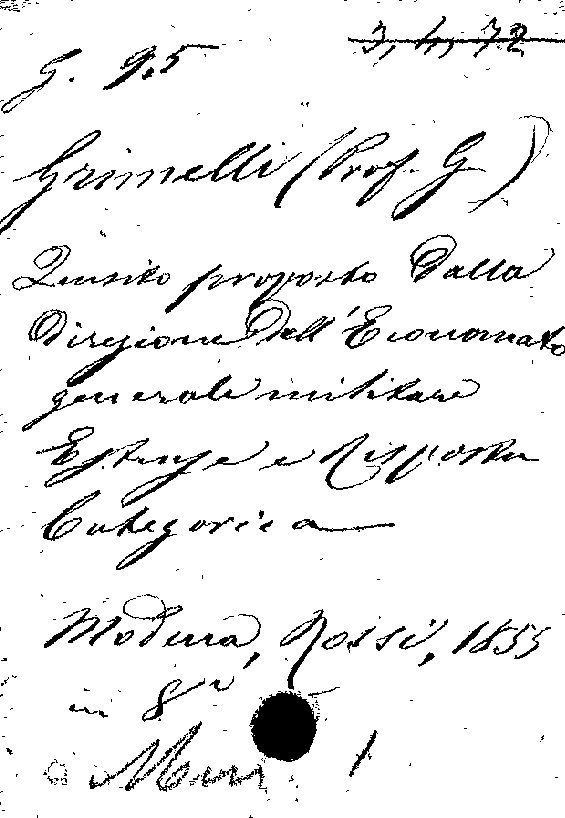 3, 4, 72
G. 95
Grimelli (Prof. G.)
Quesito proposto dalla
Direzione dell'Economato
generale militare
Estense e Risposta
Categorica
Modena, Rossi, 1855
in 8º